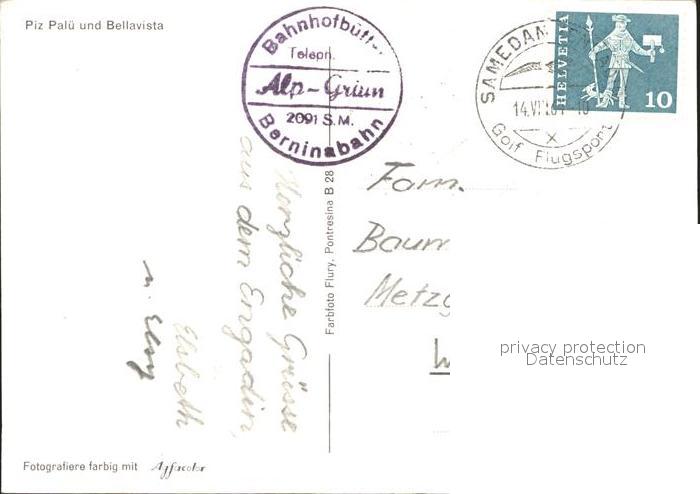 Piz Palü und Bellavista
Bahnhofbüff
Teleph.
Alp-Grüm
2091 S.M.
Berninabahn
SAMEDAN
14.VI
Golf Flugsport
HELVETIA
10
Herzliche Grüsse
aus dem Engadin,
Elsbeth
u. Elsy
Farbfoto Flury, Pontresina B 28
Fam.
Baum
Metzg
W
privacy protection
Datenschutz
Fotografiere farbig mit Agfacolor